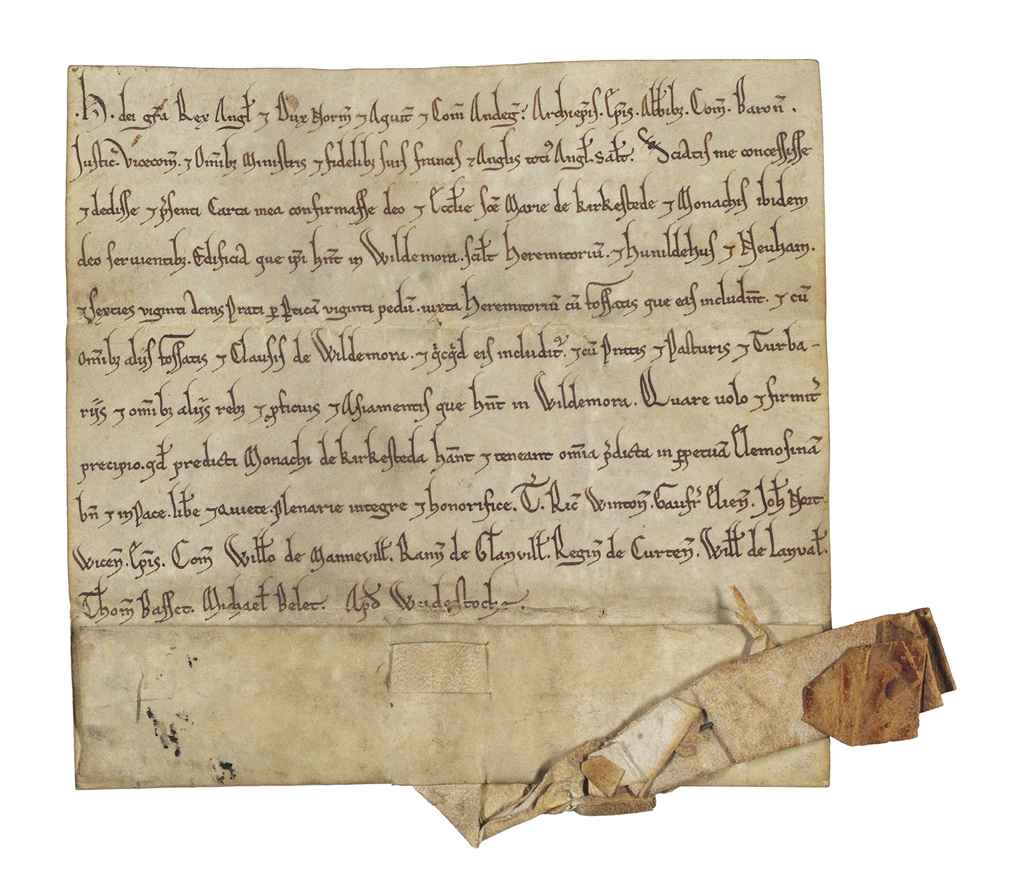 .H. dei gr̃a Rex Angl̃ ⁊ Dux Norm̃ ⁊ Aquit̃ ⁊ Com̃ Andeg̃. Archiep̃is. Ep̃is. Abb̃ibȝ. Com̃. Baroñ.
Justic̃. Vicecom̃. ⁊ Om̃ibȝ Ministris ⁊ fidelibȝ suis francis ⁊ Anglis toti᷒ Angl̃. Sal̃t. Sciatis me concessisse
⁊ dedisse ⁊ p̃senti Carta mea confirmasse deo ⁊ Eccl̃ie sc̃e Marie de kirkestede ⁊ Monachis ibidem
deo seruientibȝ. Edificia que ip̃i hñt in Wildemora. scil̃t heremitoriũ. ⁊ hunildehus ⁊ Neuham.
⁊ Sexcies viginti Acras Prati ꝑ ꝑticã viginti pedũ. iuxta heremitoriũ cũ fossatis que eas includũt. ⁊ cũ
om̃ibȝ alijs fossatis ⁊ Clausis de Wildemora. ⁊ q̃icq̃d eis includit̃. ⁊ cũ Pratis ⁊ Pasturis ⁊ Turba-
rijs ⁊ om̃ibȝ alijs rebȝ ⁊ ꝓficuis ⁊ Asiamentis que hñt in Wildemora. Quare uolo ⁊ firmit̃
precipio. qd̃ predicti Monachi de kirkesteda hãnt ⁊ teneant om̃ia p̃dicta in ꝑpetuã Elemosinã
bñ ⁊ in Pace. lib̃e ⁊ Quiete. Plenarie integre ⁊ honorifice. T̃. Ric̃ Wintoñ. Gaufr̃ Elieñ. Joh̃ Nort-
wiceñ. Ep̃is. Com̃ Will̃o de Mannevill̃. Rann̄ de Glanvill̃. Regiñ de Curteñ. Will̃ de Lanval̃.
Thom̃ Basset. Michael̃ Belet. Ap̃d Wudestoch.